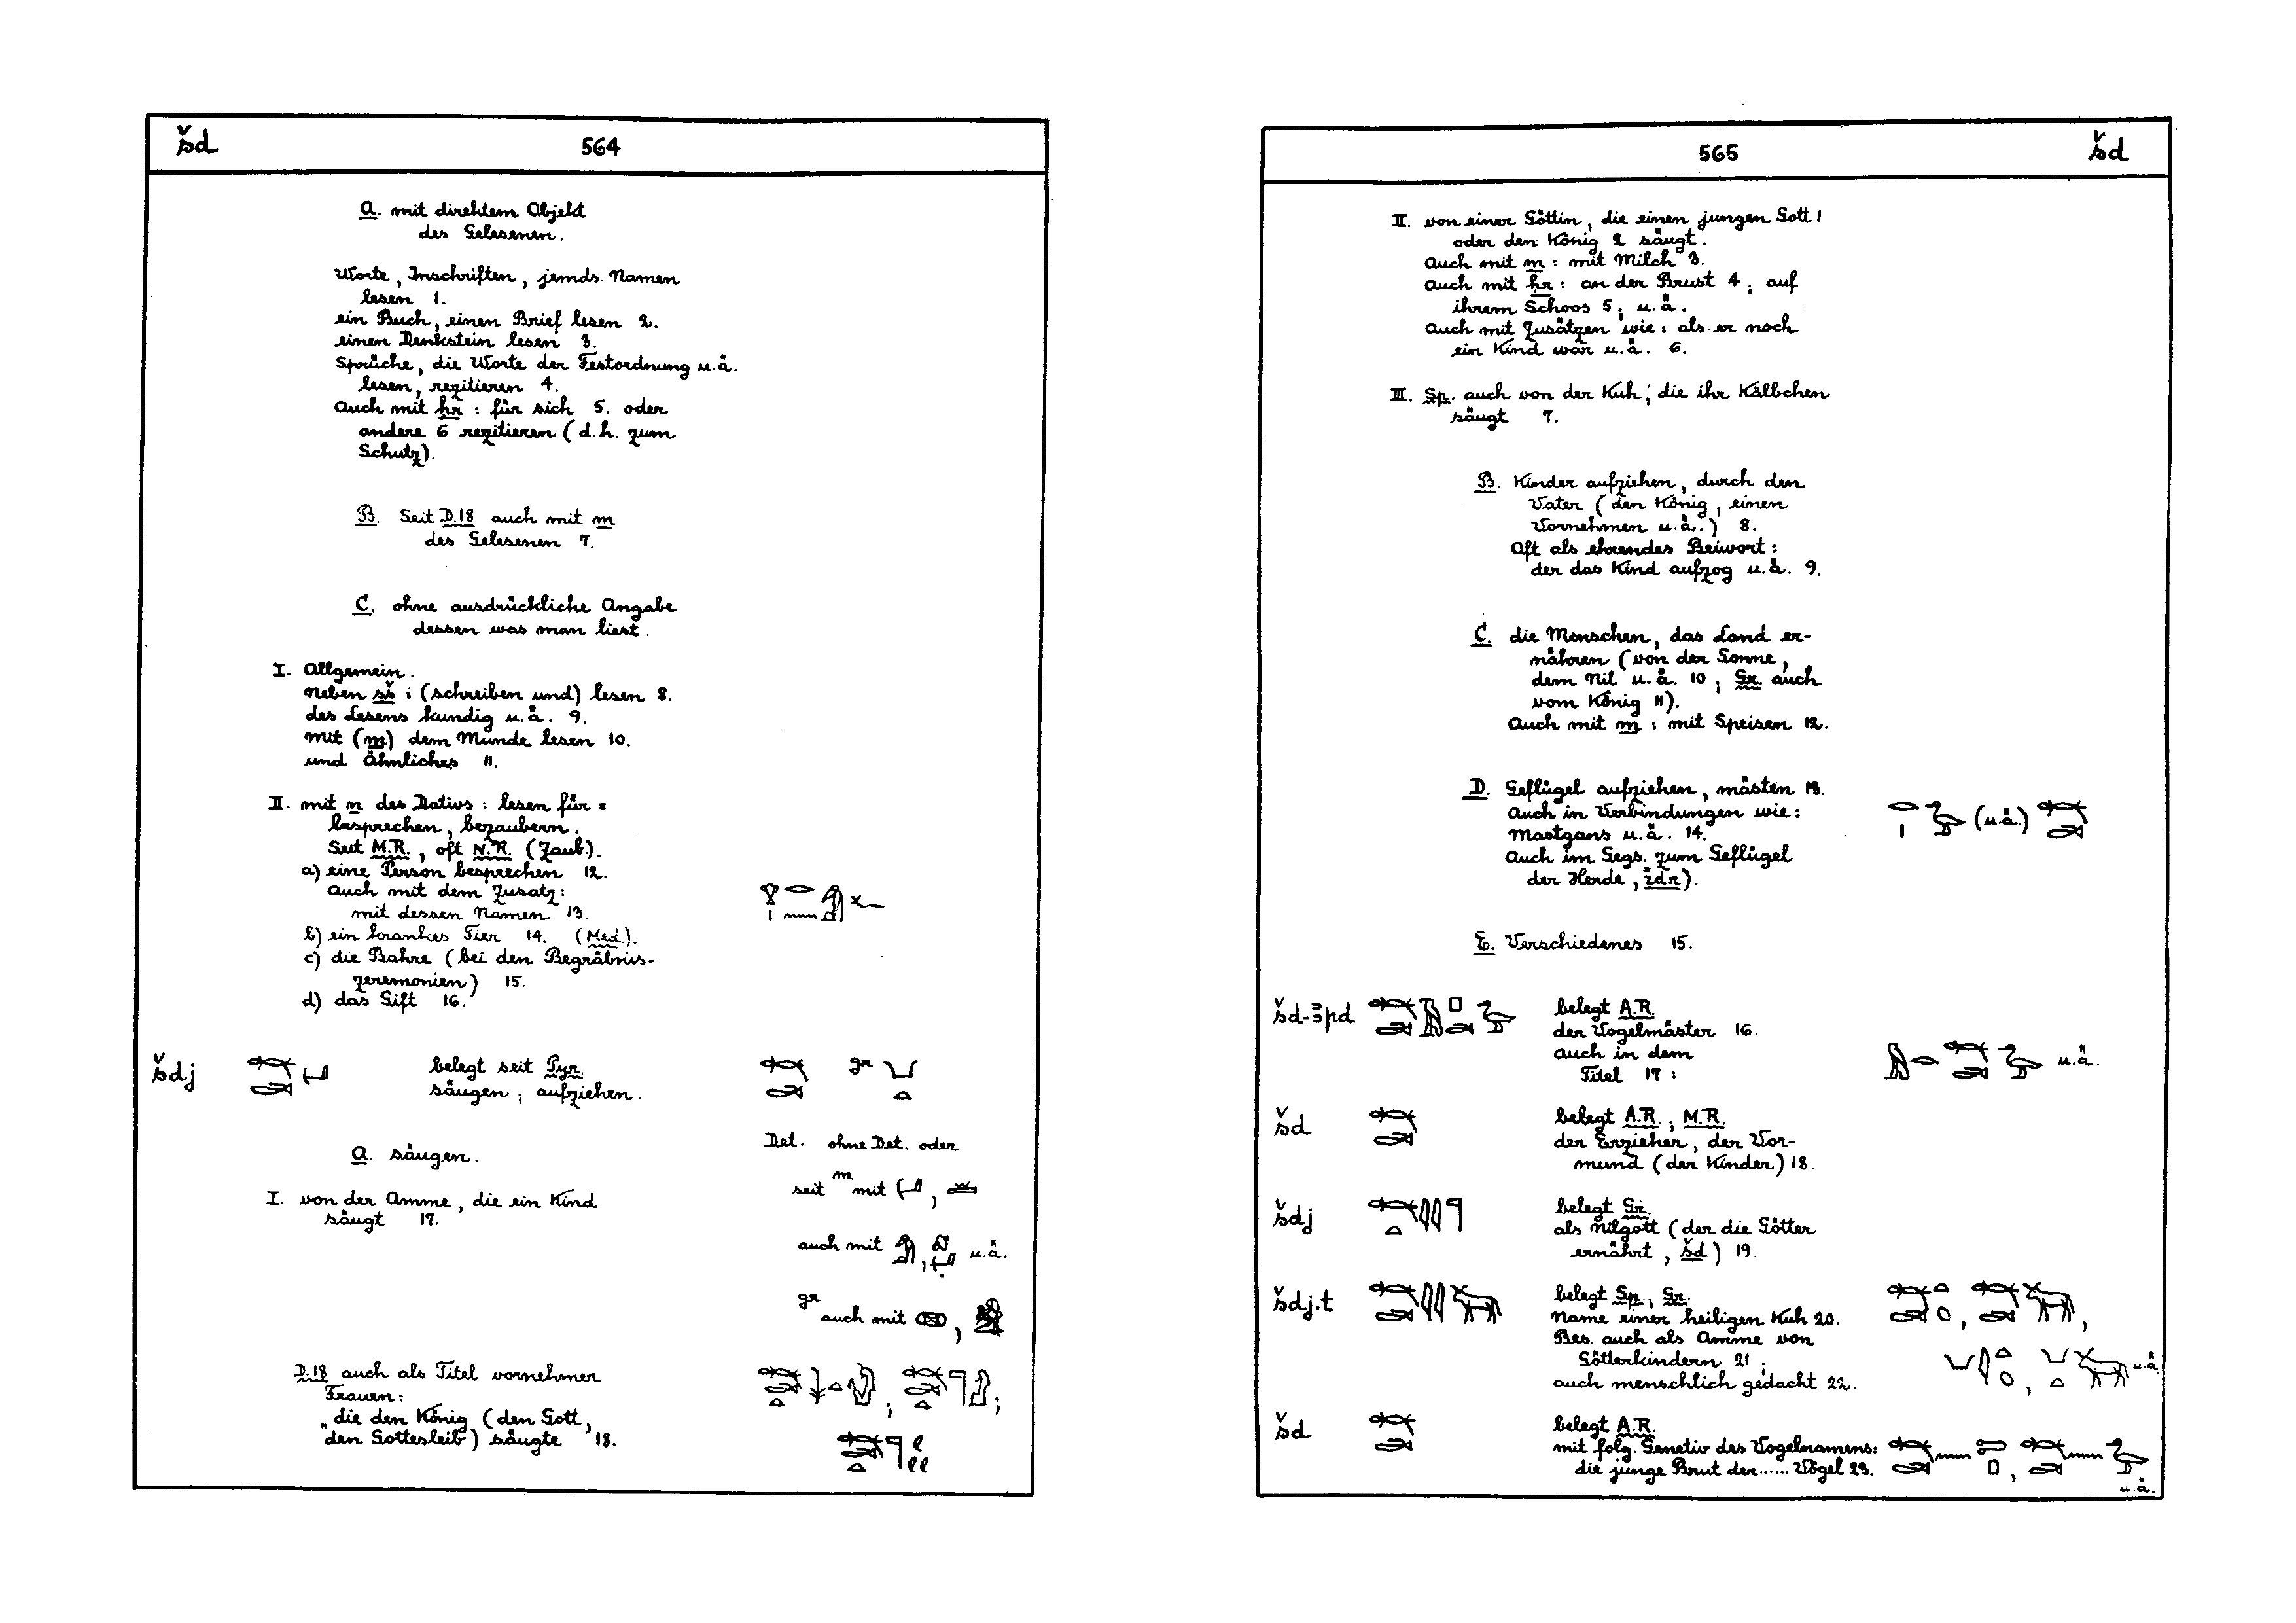 šd 564
A. mit direktem Objekt
des Gelesenen.
Worte, Inschriften, jemds. Namen
lesen 1.
ein Buch, einen Brief lesen 2.
einen Denkstein lesen 3.
Sprüche, die Worte der Festordnung u.ä.
lesen, rezitieren 4.
Auch mit ḥr : für sich 5. oder
andere 6 rezitieren (d.h. zum
Schutz).
B. Seit D.18 auch mit m
des Gelesenen 7.
C. ohne ausdrückliche Angabe
dessen was man liest.
I. Allgemein.
neben sš : (schreiben und) lesen 8.
des Lesens kundig u.ä. 9.
mit (m) dem Munde lesen 10.
und Ähnliches 11.
II. mit n des Dativs : lesen für =
besprechen, bezaubern.
Seit M.R., oft N.R. (Zaub.).
a) eine Person besprechen 12.
auch mit dem Zusatz:
mit dessen Namen 13.
b) ein krankes Tier 14. (Med.).
c) die Bahre (bei den Begräbnis-
zeremonien) 15.
d) das Gift 16.
šdj belegt seit Pyr. gr
säugen; aufziehen.
Det. ohne Det. oder
A. säugen.
seit m mit
I. von der Amme, die ein Kind
säugt 17.
auch mit u.ä.
gr auch mit
D.18 auch als Titel vornehmer
Frauen:
"die den König (den Gott,
den Gottesleib) säugte 18.
565 šd
II. von einer Göttin, die einen jungen Gott 1
oder den König 2 säugt.
Auch mit m : mit Milch 3.
Auch mit ḥr : an der Brust 4; auf
ihrem Schoos 5; u.ä.
Auch mit Zusätzen wie: als er noch
ein Kind war u.ä. 6.
III. Sp. auch von der Kuh, die ihr Kälbchen
säugt 7.
B. Kinder aufziehen, durch den
Vater (den König, einen
Vornehmen u.ä.) 8.
Oft als ehrendes Beiwort:
der das Kind aufzog u.ä. 9.
C. die Menschen, das Land er-
nähren (von der Sonne,
dem Nil u.ä. 10; Gr. auch
vom König 11).
Auch mit m : mit Speisen 12.
D. Geflügel aufziehen, mästen 13.
Auch in Verbindungen wie:
Mastgans u.ä. 14. (u.ä.)
Auch im Gegs. zum Geflügel
der Herde, idr).
E. Verschiedenes 15.
šd-ꜣpd belegt A.R.
der Vogelmäster 16.
auch in dem
Titel 17: u.ä.
šd belegt A.R.; M.R.
der Erzieher, der Vor-
mund (der Kinder) 18.
šdj belegt Gr.
als Nilgott (der die Götter
ernährt, šd) 19.
šdj.t belegt Sp.; Gr.
Name einer heiligen Kuh 20.
Bes. auch als Amme von
Götterkindern 21; u.ä.
auch menschlich gedacht 22.
šd belegt A.R.
mit folg. Genetiv des Vogelnamens:
die junge Brut der ...... Vögel 23.
u.ä.